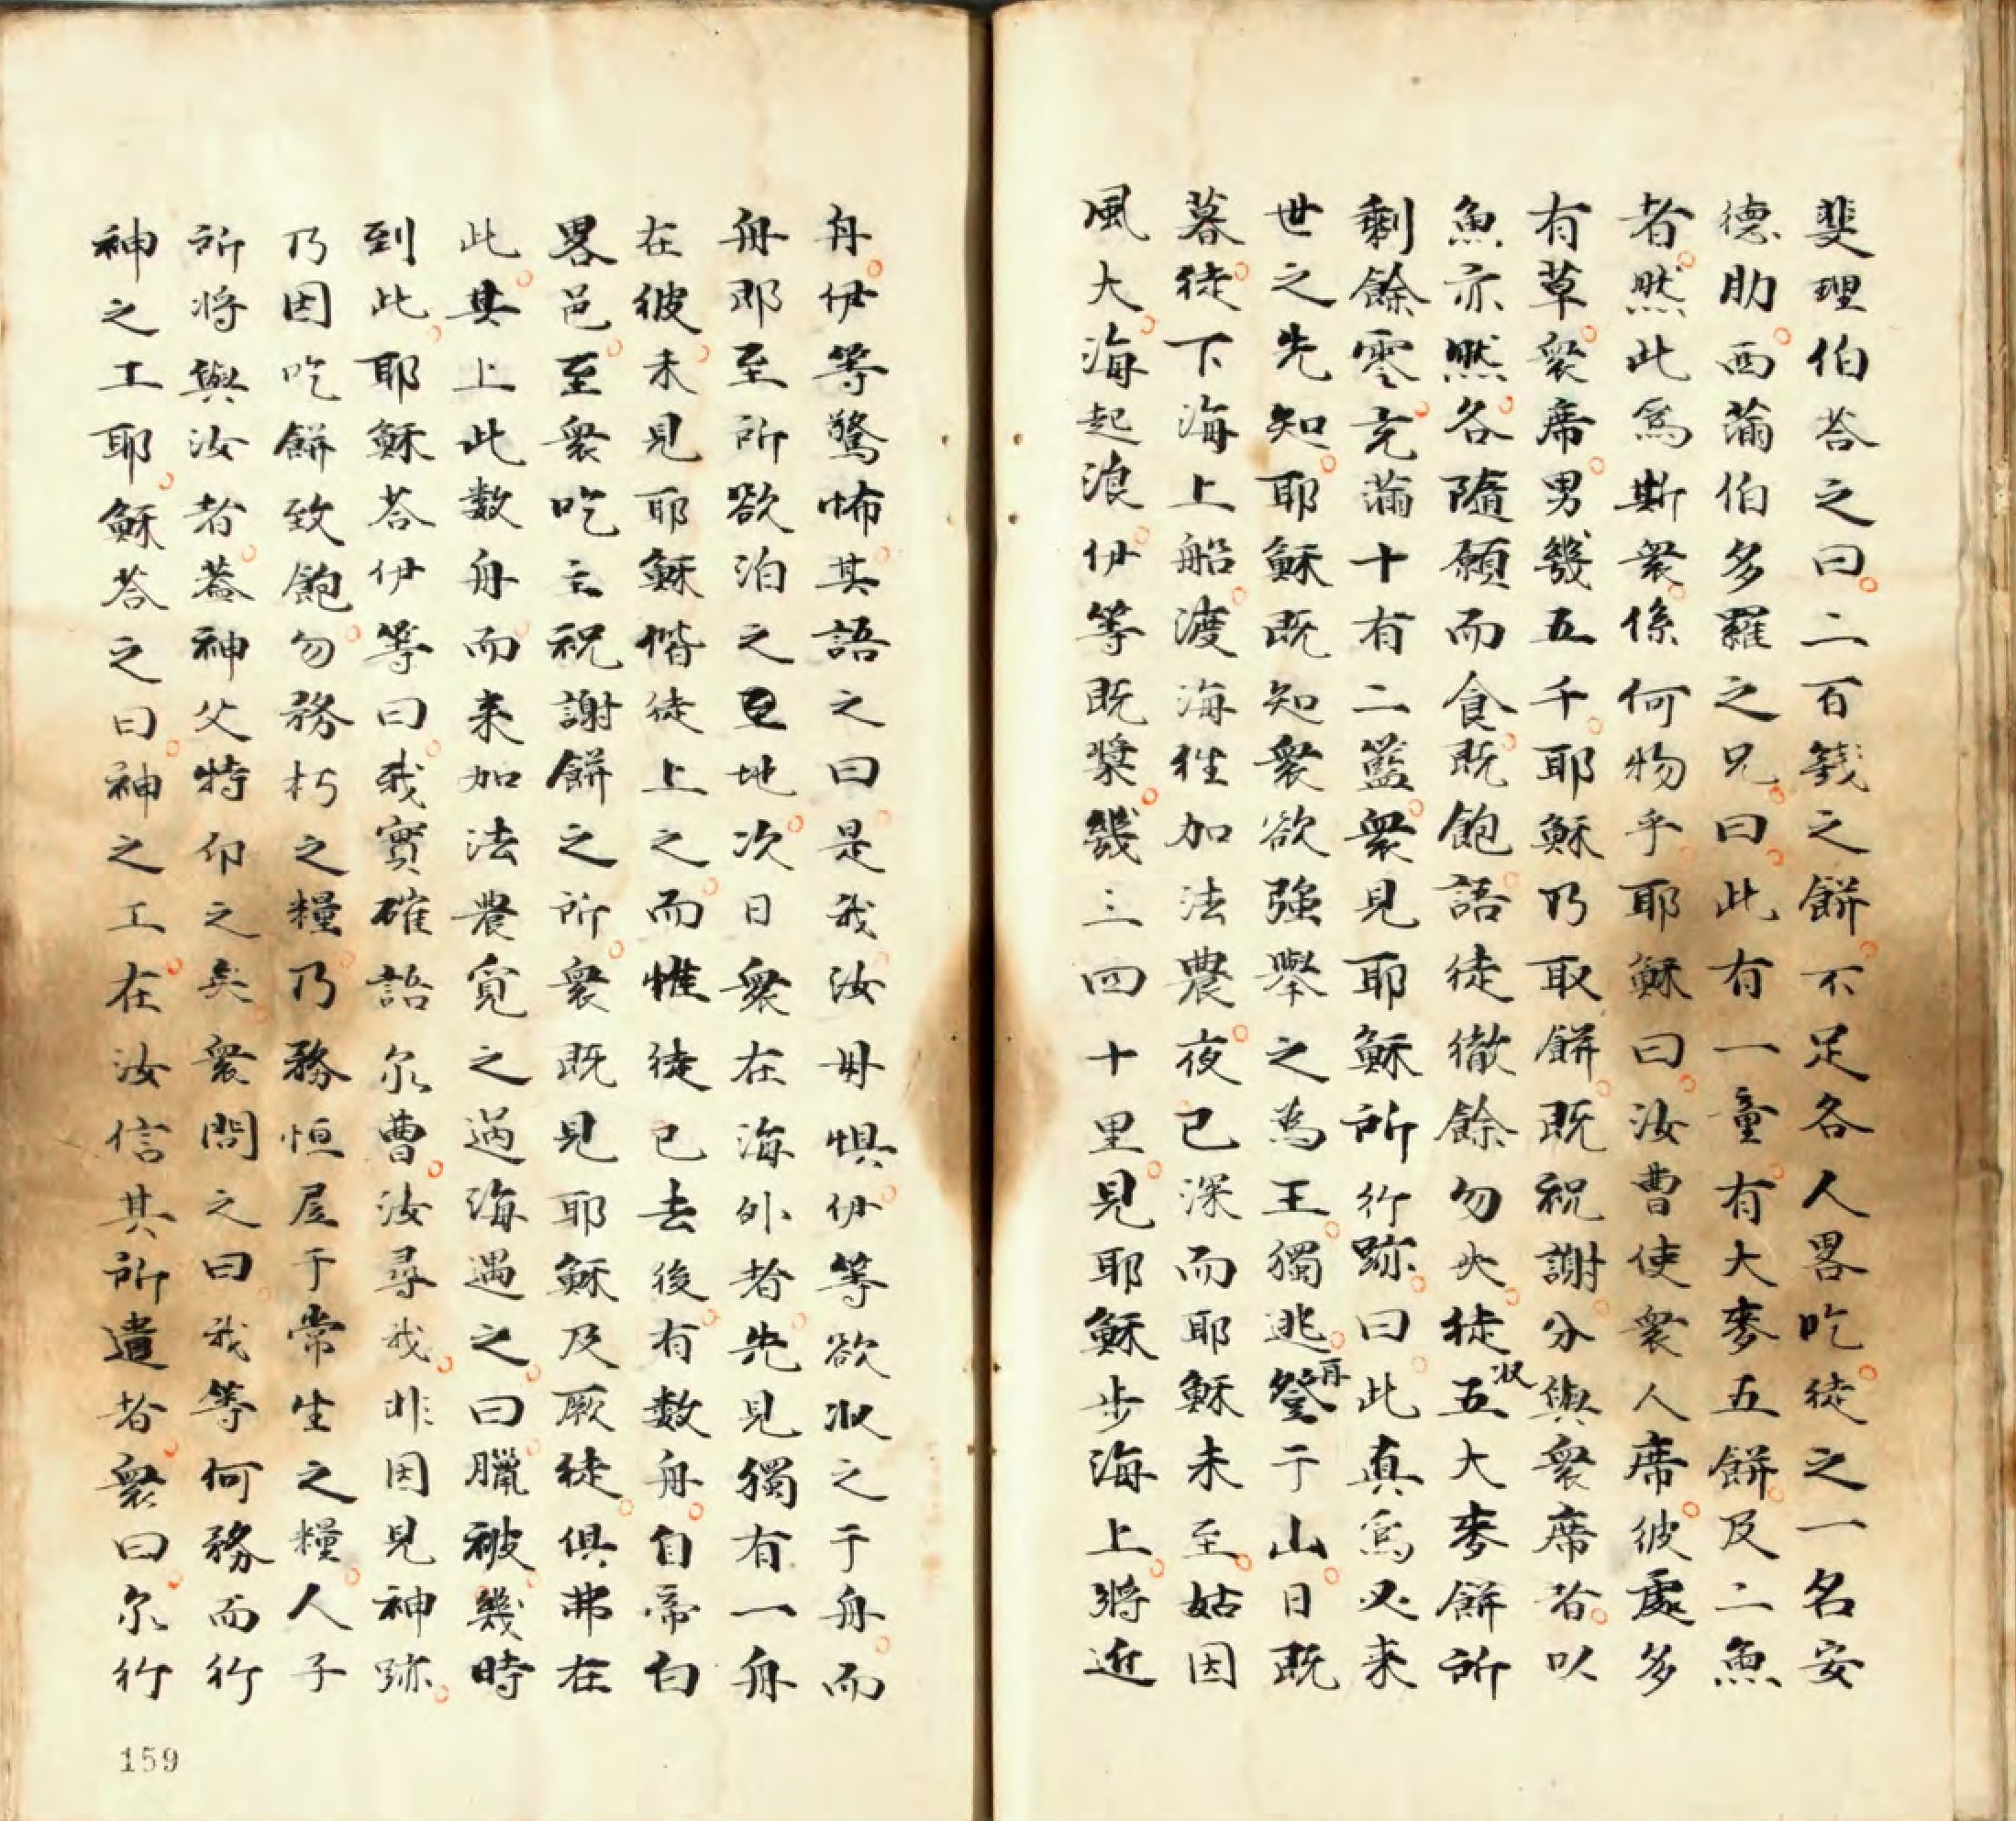 斐理伯荅之曰二百錢之餅不足各人畧吃徒之一名安
德肋西滿伯多羅之兄曰此有一童有大麥五餅及二魚
者然此為斯衆係何物乎耶穌曰汝曹使衆人席彼處多
有草衆席男幾五千耶穌乃取餅既祝謝分與衆席者以
魚亦然各隨願而食既飽語徒徹餘勿失徒収五大麥餅所
剩餘零充滿十有二籃衆見耶穌所行跡曰此真為必来
世之先知耶穌既知衆欲強舉之為王獨逃再登于山日既
暮徒下海上船渡海徃加法農夜已深而耶穌未至姑因
風大海起浪伊等既槳幾三四十里見耶穌步海上將近
舟伊等驚怖其語之曰是我汝毋惧伊等欲収之于舟而
舟即至所欲泊之地次日衆在海外者先見獨有一舟
在彼未見耶穌偕徒上之而惟徒已去後有数舟自帝白
畧邑至衆吃主祝謝餅之所衆既見耶穌及厥徒俱弗在
此其上此数舟而来加法農覓之過海遇之曰臘被幾時
到此耶穌荅伊等曰我實確語尔曹汝尋我非因見神跡
乃因吃餅致飽勿務朽之糧乃務恒居于常生之糧人子
所將與汝者葢神父特印之矣衆問之曰我等何務而行
神之工耶穌荅之曰神之工在汝信其所遣者衆曰尔行
159